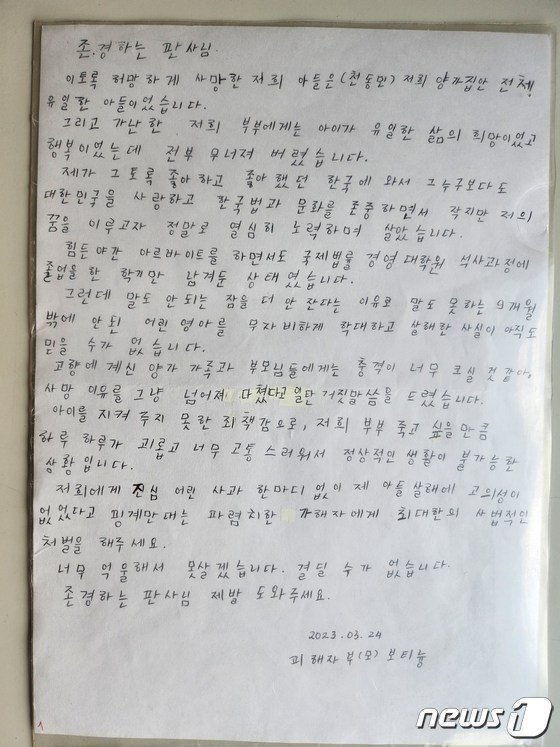 존경하는 판사님.
이토록 허망하게 사망한 저희 아들은(천동민) 저희 양가집안 전체,
유일한 아들이었습니다.
그리고 가난한 저희 부부에게는 아이가 유일한 삶의 희망이었고
행복이었는데 전부 무너져 버렸습니다.
제가 그토록 좋아하고 좋아했던 한국에 와서 그누구보다도
대한민국을 사랑하고 한국법과 문화를 존중하면서 작지만 저의
꿈을 이루고자 정말로 열심히 노력하며 살았습니다.
힘든야간 아르바이트를 하면서도 국제법률 경영대학원 석사과정에
졸업을 한 학기만 남겨둔 상태였습니다.
그런데 말도 안되는 잠을 더 안 잔다는 이유로 말도 못하는 9개월
밖에 안된 어린 영아를 무자비하게 학대하고 살해한 사실이 아직도
믿을 수가 없습니다.
고향에 계신 양가 가족과 부모님들에게는 충격이 너무 크실 것 같아,
사망 이유를 그냥 넘어져 다쳤다고 일단 거짓말씀을 드렸습니다.
아이를 지켜주지 못한 죄책감으로, 저희 부부 죽고 싶을만큼
하루 하루가 괴롭고 너무 고통스러워서 정상적인 생활이 불가능한
상황입니다.
저희에게 진심 어린 사과 한마디 없이 제 아들살해에 고의성이
없었다고 핑계만대는 파렴치한 가해자에게 최대한의 사법적인
처벌을 해주세요.
너무 억울해서 못살겠습니다. 견딜 수가 없습니다.
존경하는 판사님 제발 도와주세요.
2023.03.24
피해자 부(모) 보티늉
1
news1